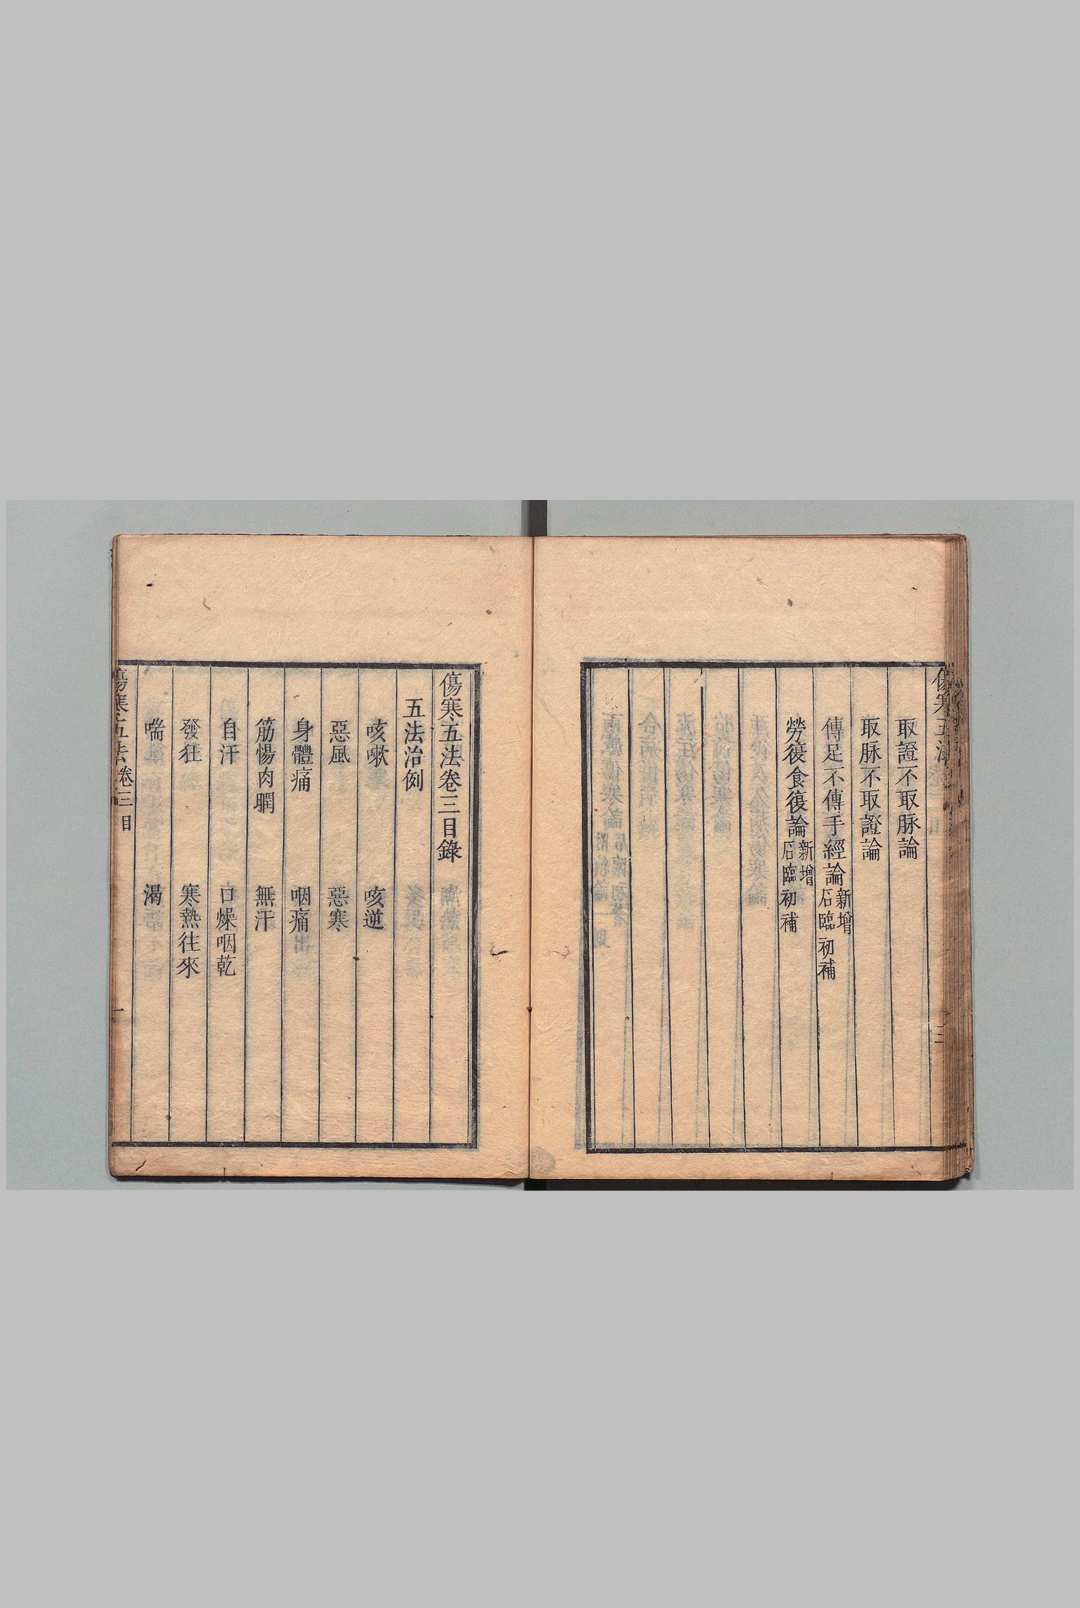 傷寒五法
三
取證不取脉論
取脉不取證論
傳足不傳手經論新增石臨初補
勞復食復論新增石臨初補
傷寒五法卷三目錄
五法治例
咳嗽 咳逆
惡風 惡寒
身體痛 咽痛
筋惕肉瞤 無汗
自汗 口燥咽乾
發狂 寒熱往來
喘 渴
傷寒五法卷三目 一